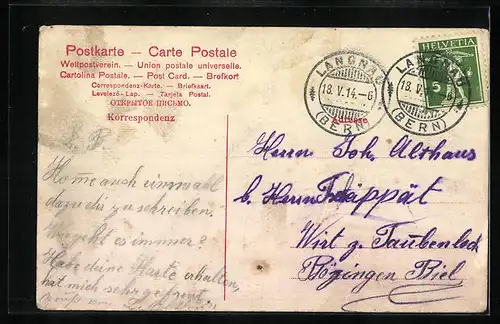 Postkarte — Carte Postale
Weltpostverein. — Union postale universelle.
Cartolina Postale. — Post Card. — Brefkort
Correspondenz-Karte. — Briefkaart.
Levelező-Lap. — Tarjeta Postal.
ОТКРЫТОЕ ПИСЬМО.
Korrespondenz
LANGNAU
18. V. 14.–6
(BERN)
LANGNAU
18. V.
(BERN)
HELVETIA
5
Adresse
Herrn Joh. Althaus
b. Herrn Trappät
Wirt z. Taubenloch
Bözingen Biel
auch einmal
dazu dir zu schreiben.
geht es immer?
Habe deine Karte erhalten,
hat mich sehr gefreut.